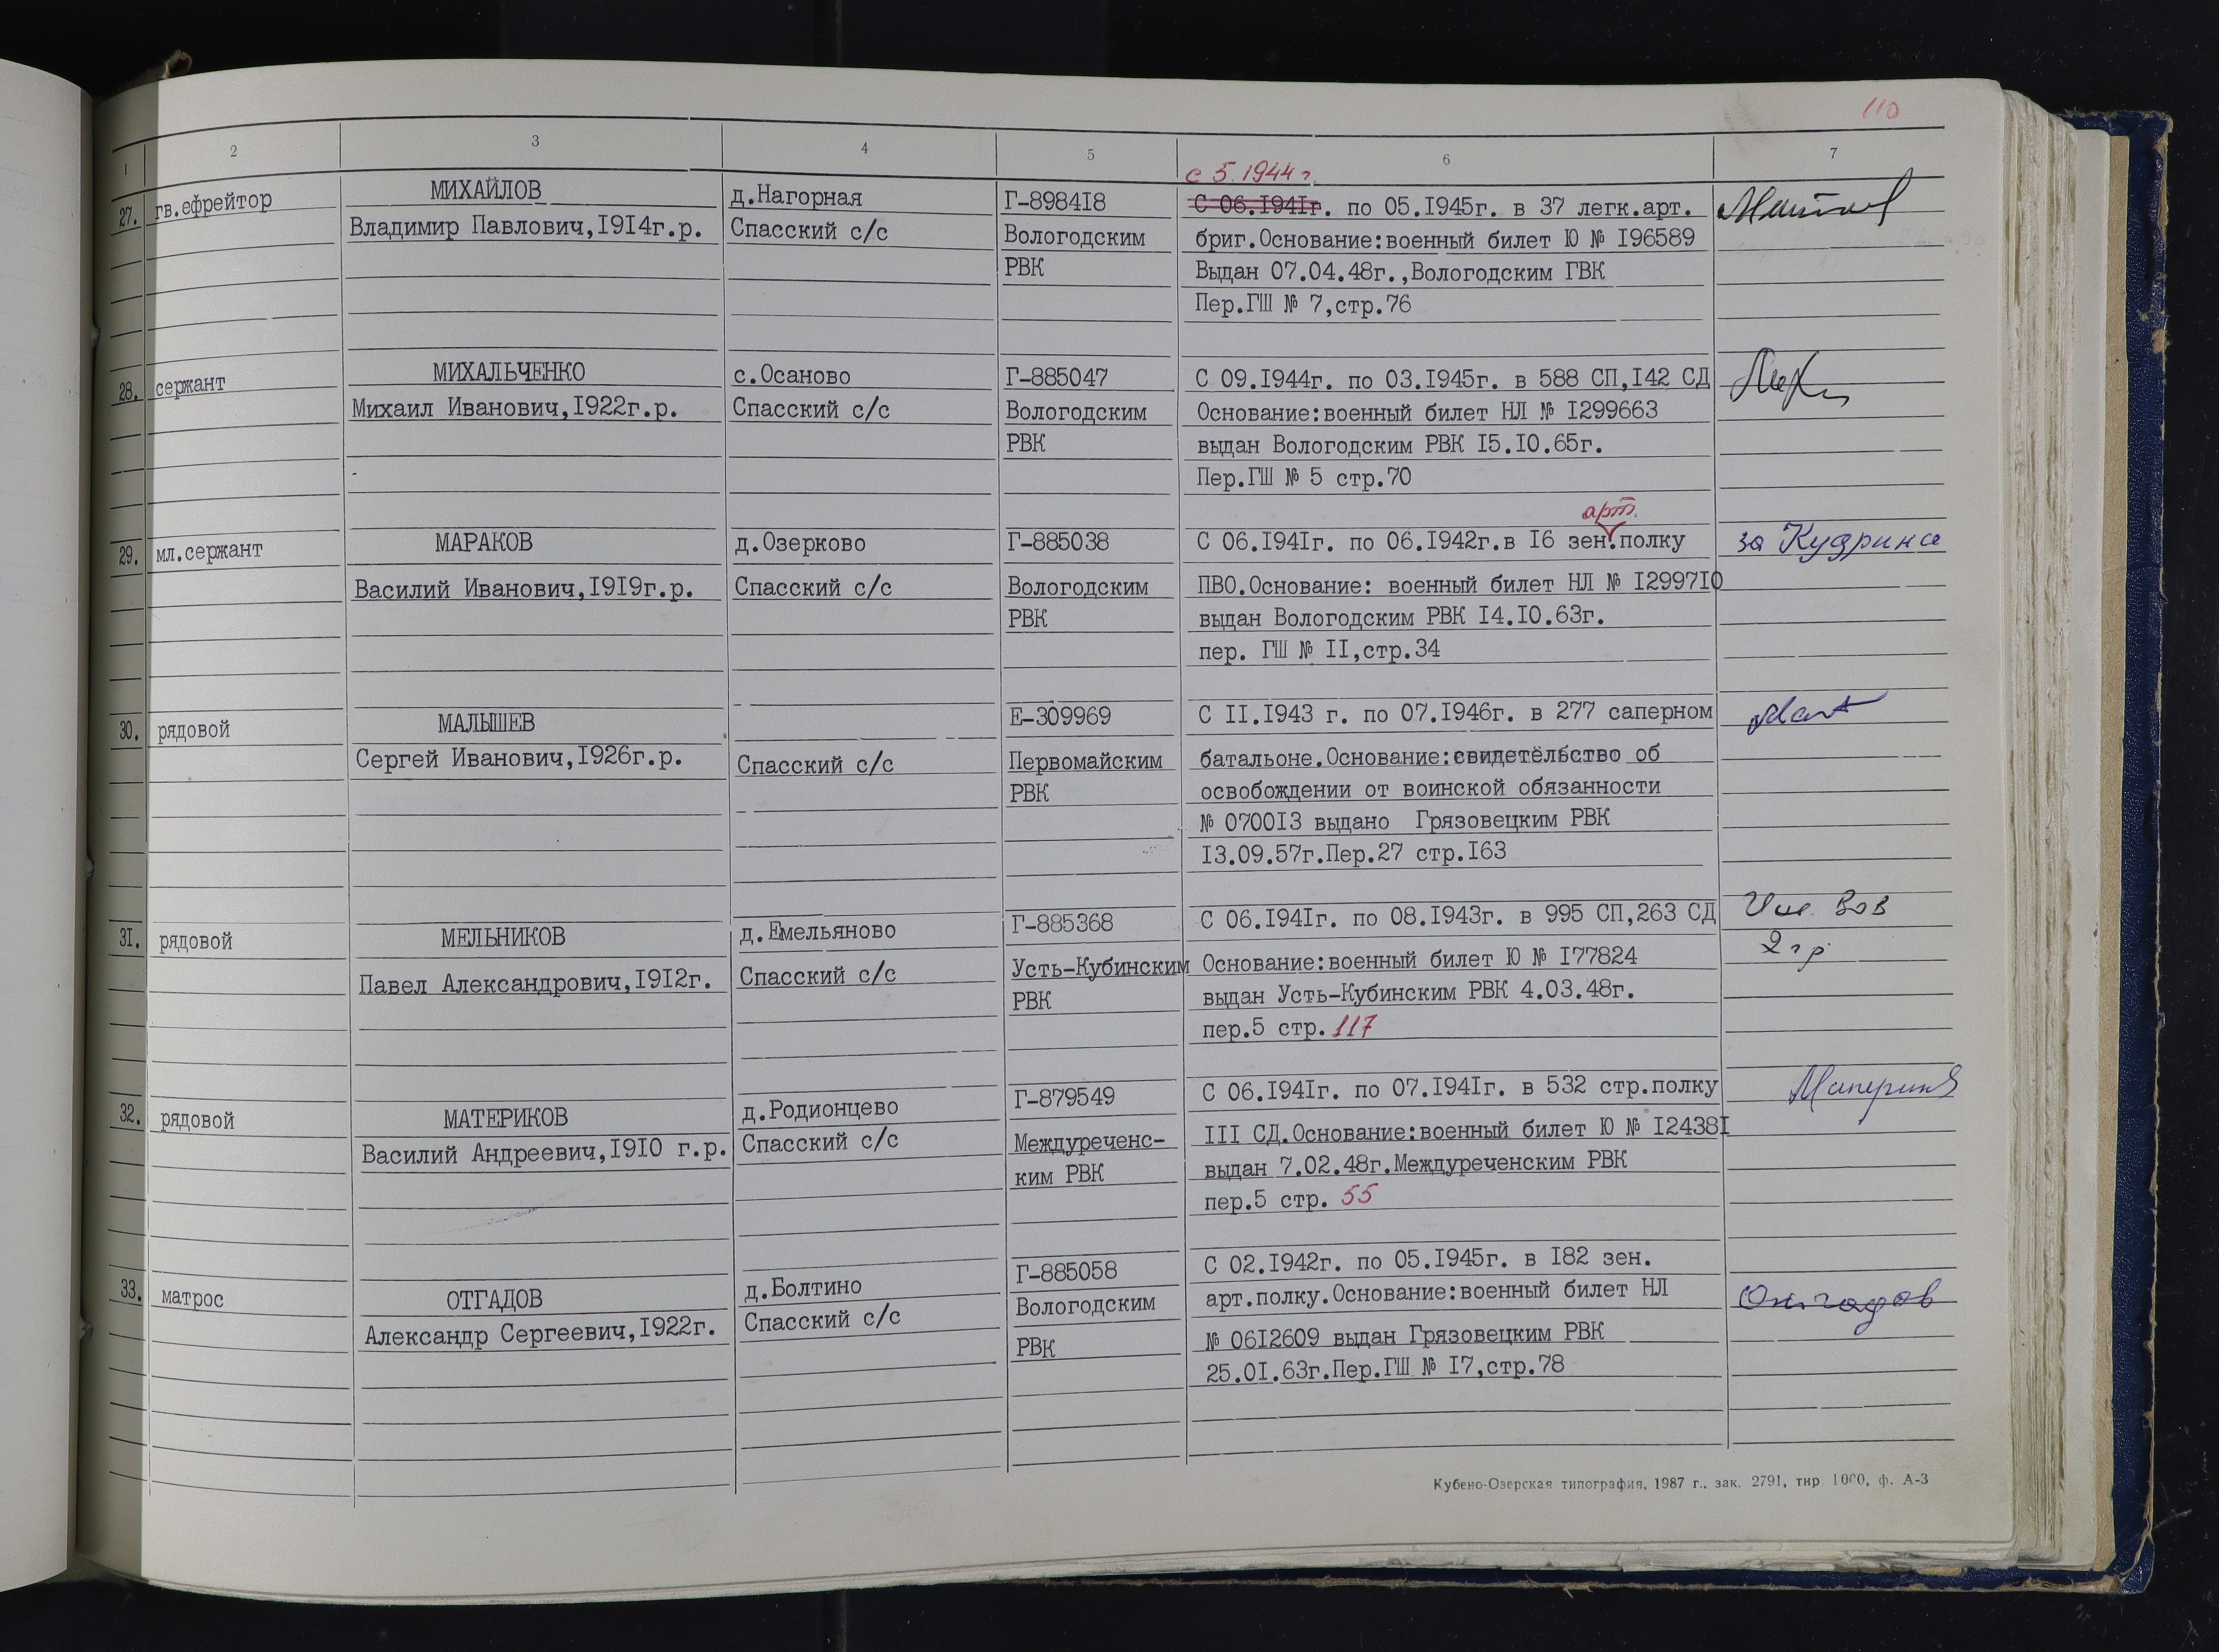 110
1 2 3 4 5 6 7
с 5.1944 г.
27. гв.ефрейтор МИХАЙЛОВ д.Нагорная Г-898418 С 06.I94Iг. по 05.I945г. в 37 легк.арт.
Владимир Павлович,I9I4г.р. Спасский с/с Вологодским бриг.Основание:военный билет Ю № I96589
РВК Выдан 07.04.48г.,Вологодским ГВК
Пер.ГШ № 7,стр.76
28. сержант МИХАЛЬЧЕНКО с.Осаново Г-885047 С 09.I944г. по 03.I945г. в 588 СП,I42 СД
Михаил Иванович,I922г.р. Спасский с/с Вологодским Основание:военный билет НЛ № I299663
РВК выдан Вологодским РВК I5.I0.65г.
Пер.ГШ № 5 стр.70
арт.
29. мл.сержант МАРАКОВ д.Озерково Г-885038 С 06.I94Iг. по 06.I942г.в I6 зен.полку за Кудрина
Василий Иванович,I9I9г.р. Спасский с/с Вологодским ПВО.Основание: военный билет НЛ № I2997I0
РВК выдан Вологодским РВК I4.I0.63г.
пер. ГШ № II,стр.34
30. рядовой МАЛЫШЕВ Е-309969 С II.I943 г. по 07.I946г. в 277 саперном
Сергей Иванович,I926г.р. Спасский с/с Первомайским батальоне.Основание:свидетельство об
РВК освобождении от воинской обязанности
№ 0700I3 выдано Грязовецким РВК
I3.09.57г.Пер.27 стр.I63
3I. рядовой МЕЛЬНИКОВ д.Емельяново Г-885368 С 06.I94Iг. по 08.I943г. в 995 СП,263 СД Инв. ВОВ
2 гр.
Павел Александрович,I9I2г. Спасский с/с Усть-Кубинским Основание:военный билет Ю № I77824
РВК выдан Усть-Кубинским РВК 4.03.48г.
пер.5 стр. 117
32. рядовой МАТЕРИКОВ д.Родионцево Г-879549 С 06.I94Iг. по 07.I94Iг. в 532 стр.полку
Василий Андреевич,I9I0 г.р. Спасский с/с Междуреченс- III СД.Основание:военный билет Ю № I2438I
ким РВК выдан 7.02.48г.Междуреченским РВК
пер.5 стр. 55
33. матрос ОТГАДОВ д.Болтино Г-885058 С 02.I942г. по 05.I945г. в I82 зен.
Александр Сергеевич,I922г. Спасский с/с Вологодским арт.полку.Основание:военный билет НЛ Отгадов
РВК № 06I2609 выдан Грязовецким РВК
25.0I.63г.Пер.ГШ № I7,стр.78
Кубено-Озерская типография, 1987 г., зак. 2791, тир 1000, ф. А-3